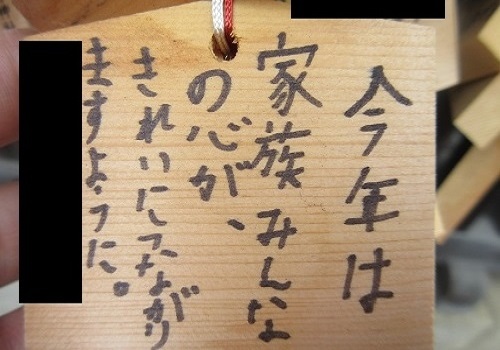 今年は
家族みんな
の心が、
きれいにつながり
ますように。